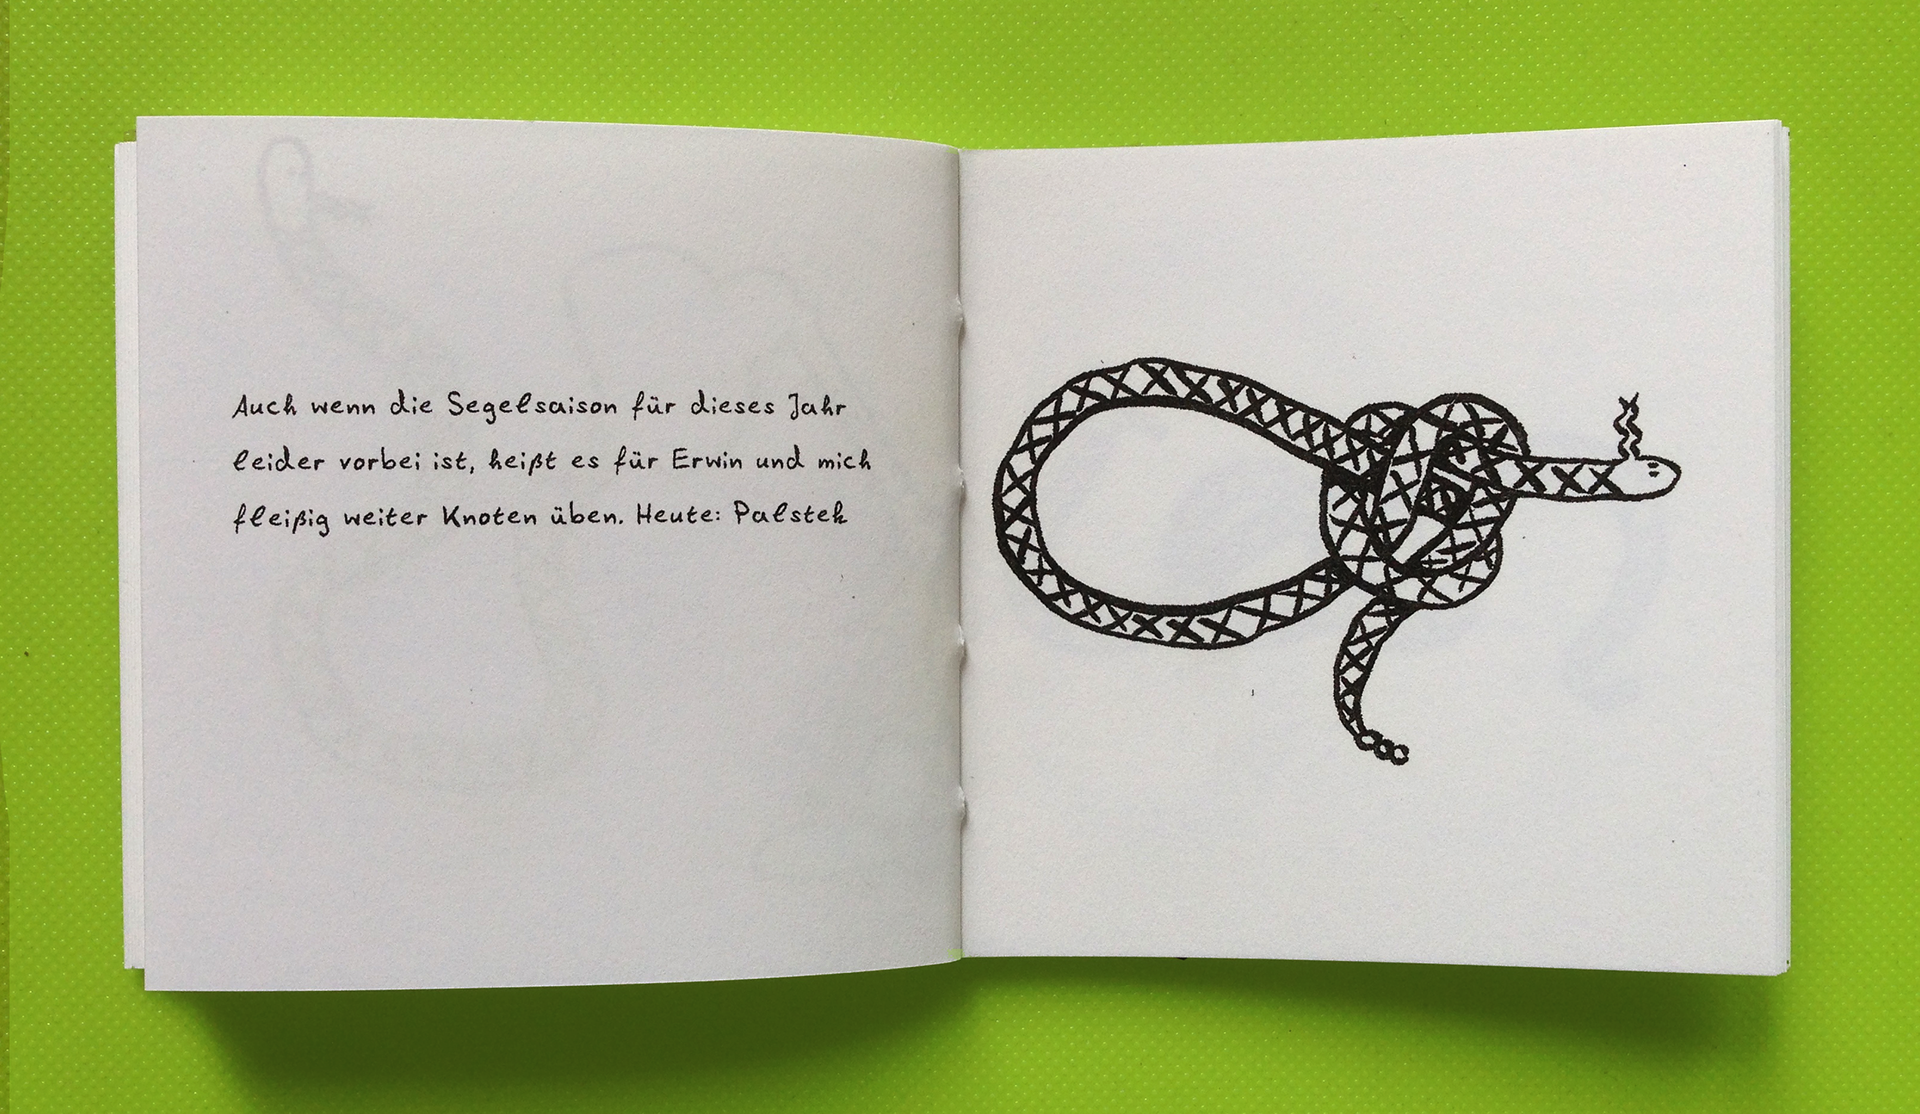 Auch wenn die Segelsaison für dieses Jahr
leider vorbei ist, heißt es für Erwin und mich
fleißig weiter Knoten üben. Heute: Palstek